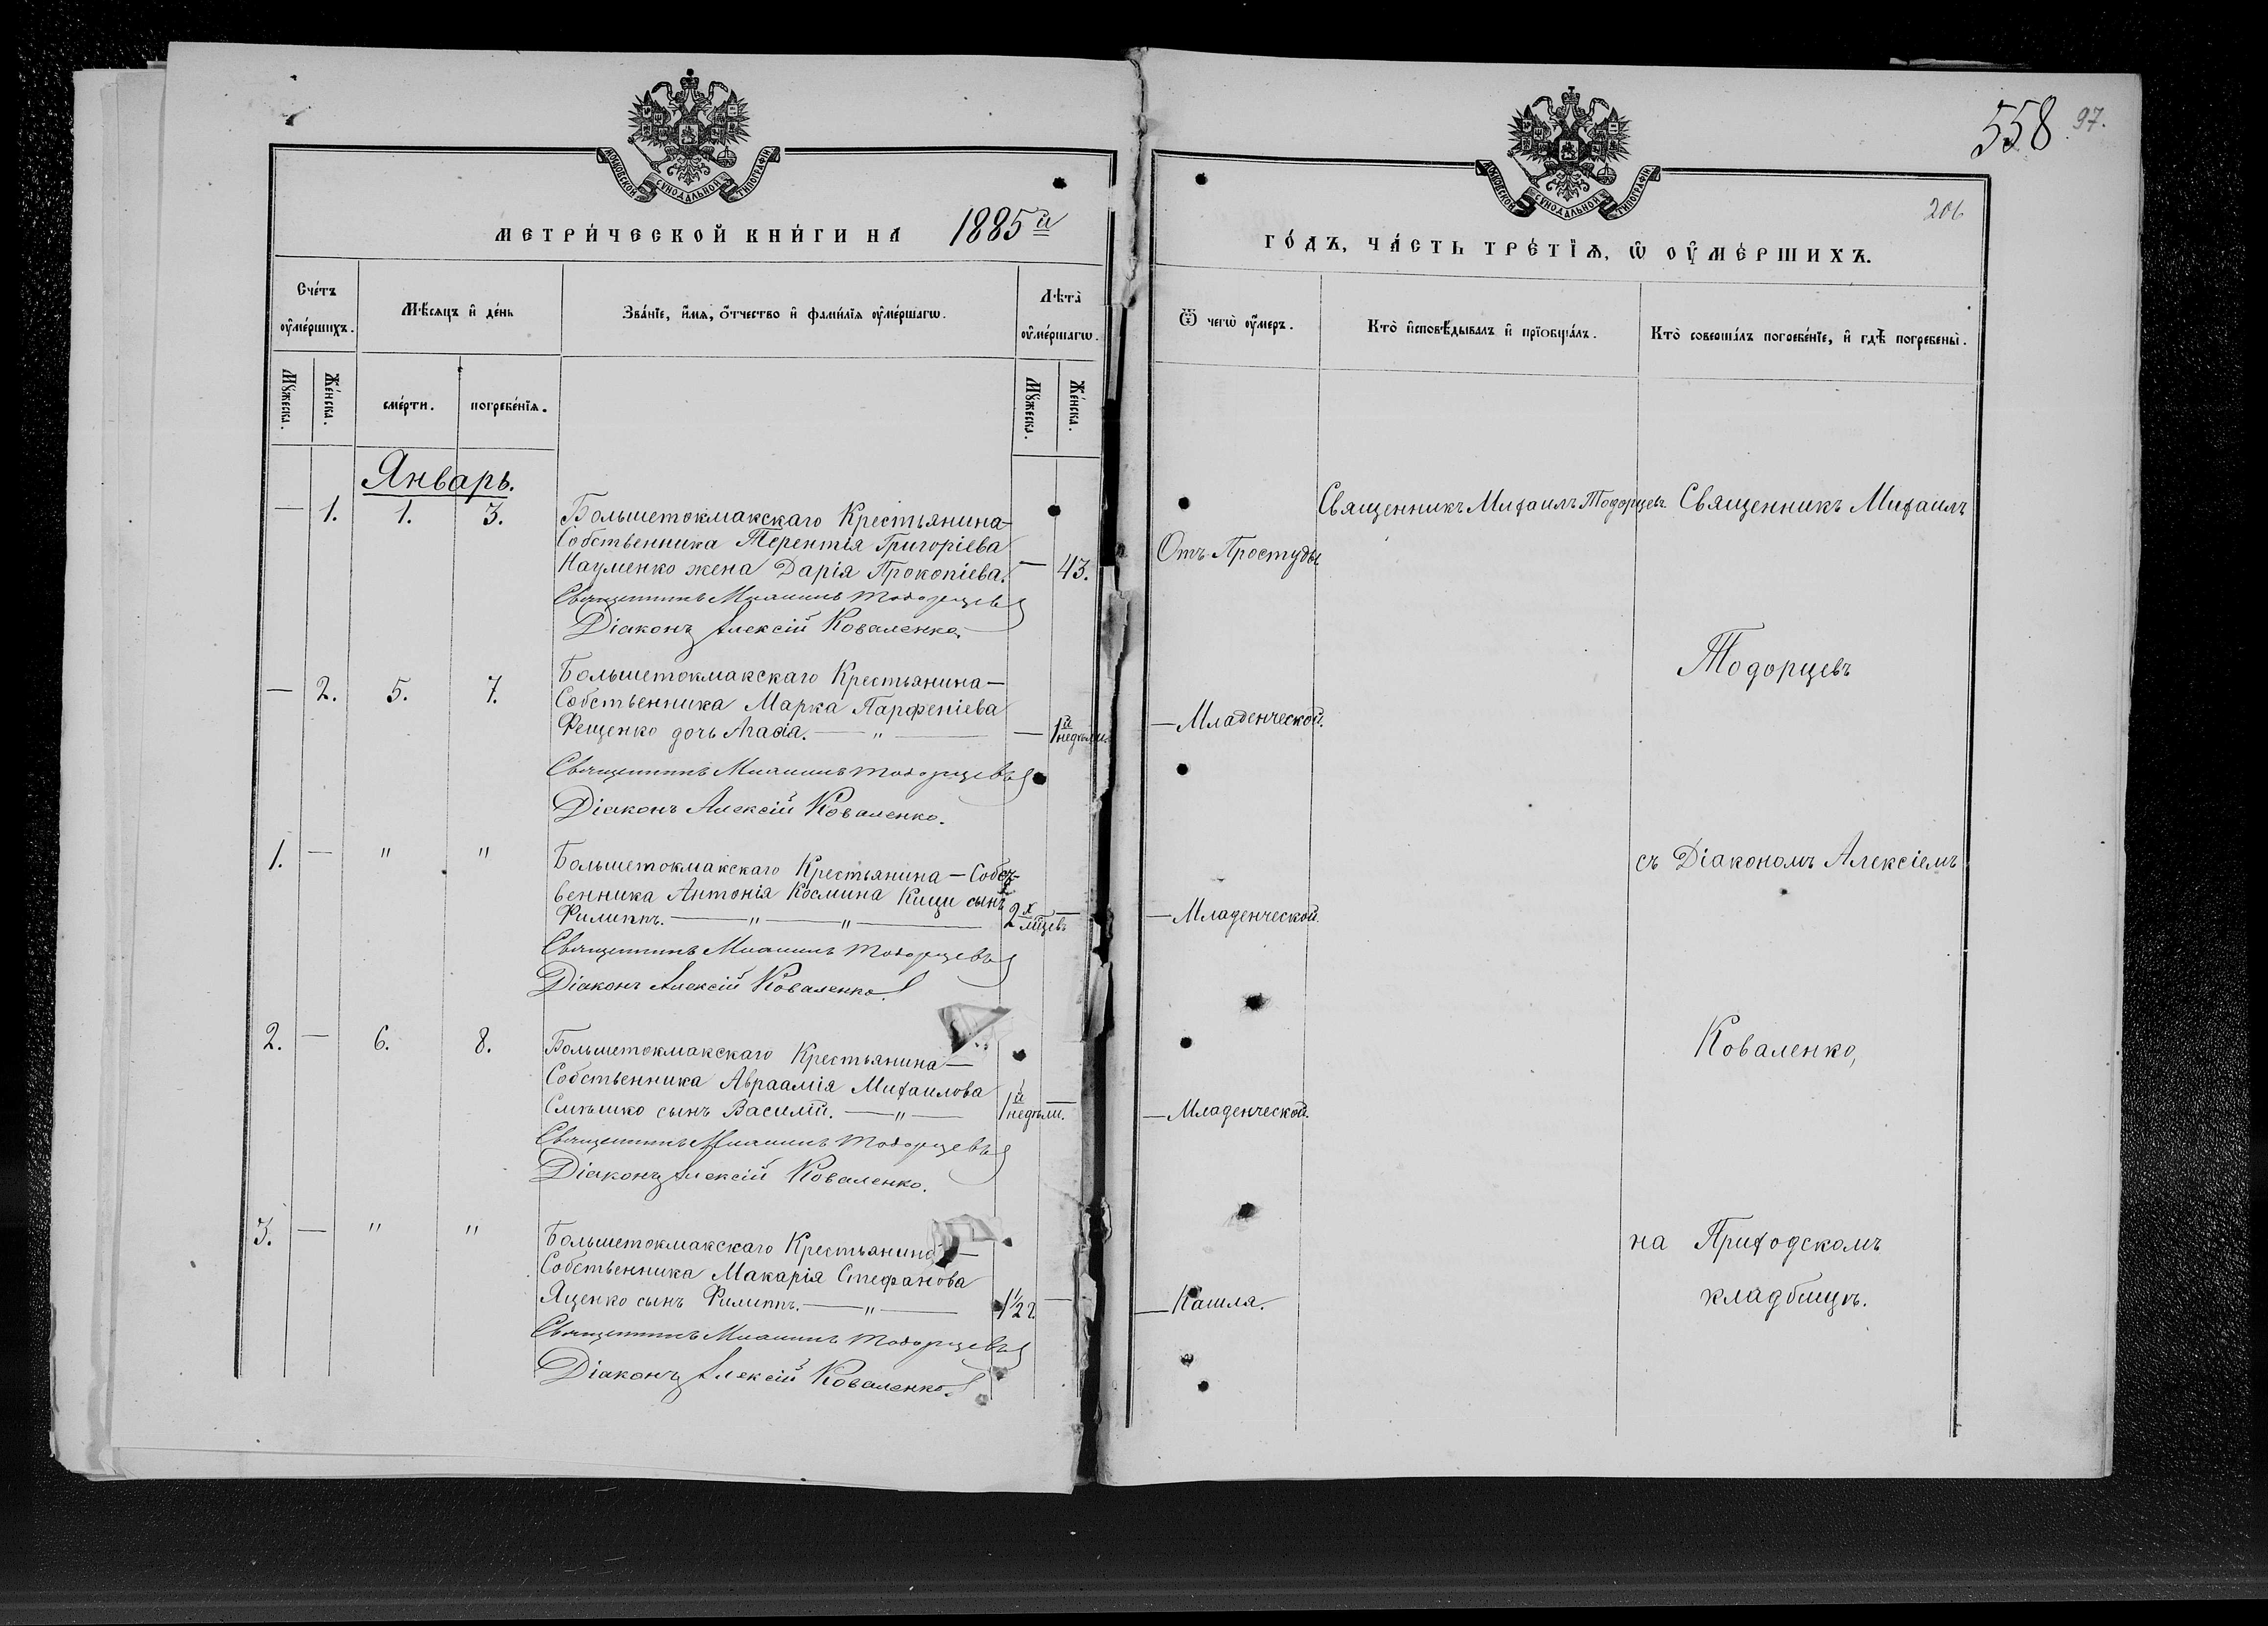 МОСКОВСКОЙ СѴНОДАЛЬНОЙ ТИПОГРАФІИ
МЕТРИ́ЧЕСКОЙ КНИ́ГИ НА 1885й
Сче́тъ оу҆ме́ршихъ.
Мꙋ́жеска.
Же́нска.
Мѣ́сяцъ и҆ де́нь
сме́рти.
погребе́нїѧ.
Зва́нїе, и҆́мѧ, ѻ҆́тчество и҆ фами́лїѧ оу҆ме́ршагѡ.
Лѣ́та оу҆ме́ршагѡ.
Мꙋ́жеска.
Же́нска.
Январь.
— 1. 1. 3. Большетокмакскаго Крестьянина-
Собственника Терентія Григоріева
Науменко жена Дарія Прокопіева. — 43.
Священникъ Михаилъ Тодорцевъ
Діаконъ Алексій Коваленко.
— 2. 5. 7. Большетокмакскаго Крестьянина —
Собственника Марка Парфеніева
Фещенко дочь Агафія. — " — — 1й недѣли
Священникъ Михаилъ Тодорцевъ
Діаконъ Алексій Коваленко.
1. — " " Большетокмакскаго Крестьянина — Собст-
венника Антонія Космина Кици сынъ
Филиппъ. — " — " — 2х мцевъ —
Священникъ Михаилъ Тодорцевъ
Діаконъ Алексій Коваленко.
2. — 6. 8. Большетокмакскаго Крестьянина —
Собственника Авраамія Михаилова
сынъ Василій. — " — 1й недѣли. —
Священникъ Михаилъ Тодорцевъ
Діаконъ Алексій Коваленко.
3. — " " Большетокмакскаго Крестьянина —
Собственника Макарія Стефанова
Яценко сынъ Филиппъ. — " — 1 1/2 г. —
Священникъ Михаилъ Тодорцевъ
Діаконъ Алексій Коваленко.
558 97.
МОСКОВСКОЙ СѴНОДАЛЬНОЙ ТИПОГРАФІИ
206
ГО́ДЪ, ЧА́СТЬ ТРЕ́ТЇѦ, Ѡ҆ ОУ҆МЕ́РШИХЪ.
Ѿ чегѡ̀ оу҆́меръ.
Кто̀ и҆сповѣ́дывалъ и҆ прїѡбща́лъ.
Кто̀ соверша́лъ погребе́нїе, и҆ гдѣ̀ погребены̀.
Священникъ Михаилъ Тодорцевъ. Священникъ Михаилъ
Отъ Простуды
Тодорцевъ
— Младенческой.
съ Діакономъ Алексіемъ
— Младенческой.
Коваленко,
— Младенческой.
на Приходскомъ
— Кашля. кладбищѣ.